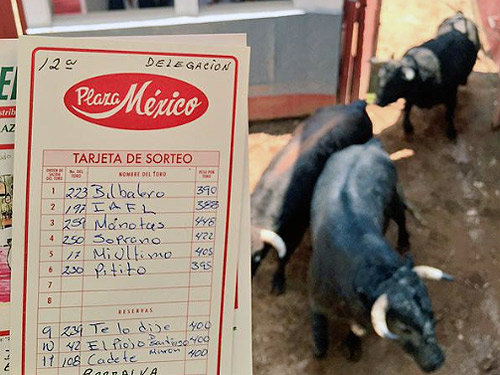 12ª DELEGACION
Plaza México
TARJETA DE SORTEO
ORDEN DE SALIDA DEL TORO No. DEL TORO NOMBRE DEL TORO PESO POR TORO
1 223 Bilbalero 390
2 197 IAFL 388
3 259 Manotas 448
4 250 Soprano 422
5 17 Mi Ultimo 405
6 230 Pitito 395
7
8
RESERVAS
9 239 Te lo dije 400
10 42 El Piojo 400
11 108 Cadete 400
BARRALVA